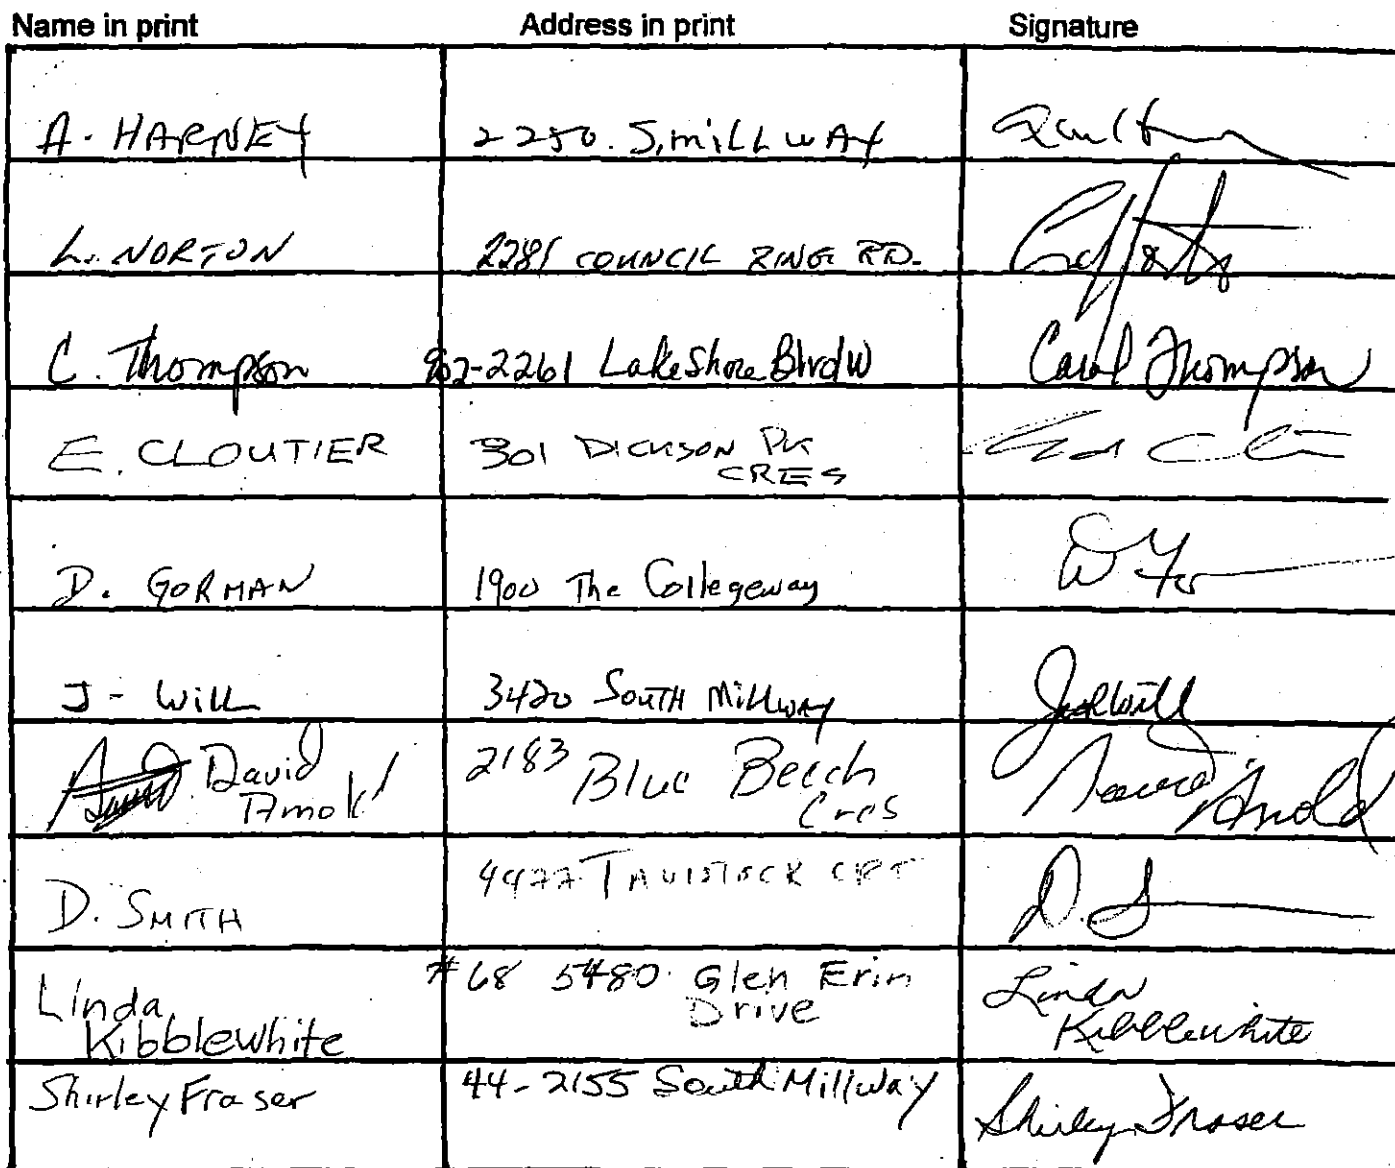 Name in print Address in print Signature
A. HARNEY 2250. S. MILLWAY
L. NORTON 2281 COUNCIL RING RD.
C. Thompson -2261 LakeShore Blvd W Carol Thompson
E. CLOUTIER 301 DICKSON PK
CRES
D. GORMAN 1900 The Collegeway
J - Will 3420 SOUTH Millway
David 2183 Blue Beech
Arnold Cres David Arnold
D. SMITH TAVISTOCK CRT D. S
Linda #68 5480 Glen Erin Linda
Kibblewhite Drive Kibblewhite
Shirley Fraser 44-2155 South Millway Shirley Fraser